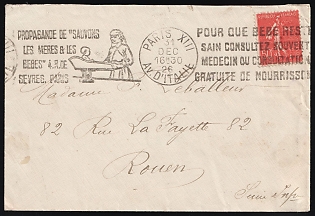 PROPAGANDE DE "SAUVONS
LES MERES & LES
BEBES" 4.R.DE
SEVRES. PARIS
PARIS XIII
DEC
16H30
26
AV. D'ITALIE
POUR QUE BEBE RESTE
SAIN CONSULTEZ SOUVENT
MEDECIN OU CONSULTATION
GRATUITE DE NOURRISSON
Madame F. Leballeur
82 Rue La Fayette 82
Rouen
Seine Infre